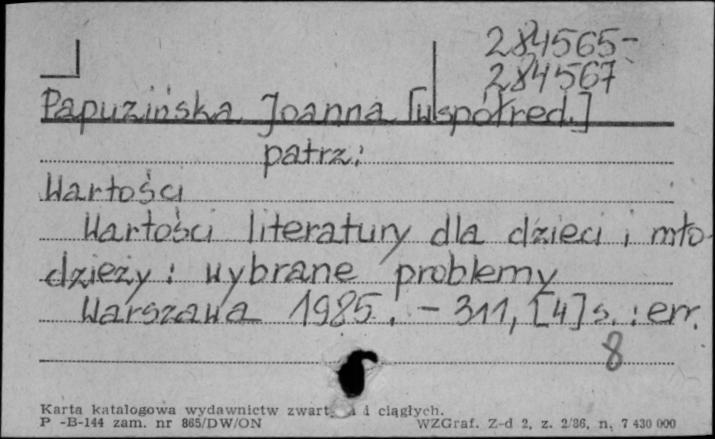 284565-
284567
Papuzińska Joanna [współred.]
patrz:
Wartości
Wartości literatury dla dzieci i mło-
dzieży : wybrane problemy
Warszawa 1985. - 311, [4] s. : err.
8
Karta katalogowa wydawnictw i ciągłych.
P -B-144 zam. nr 865/DW/ON WZGraf. Z-d 2, z. 2/86, n. 7 430 000